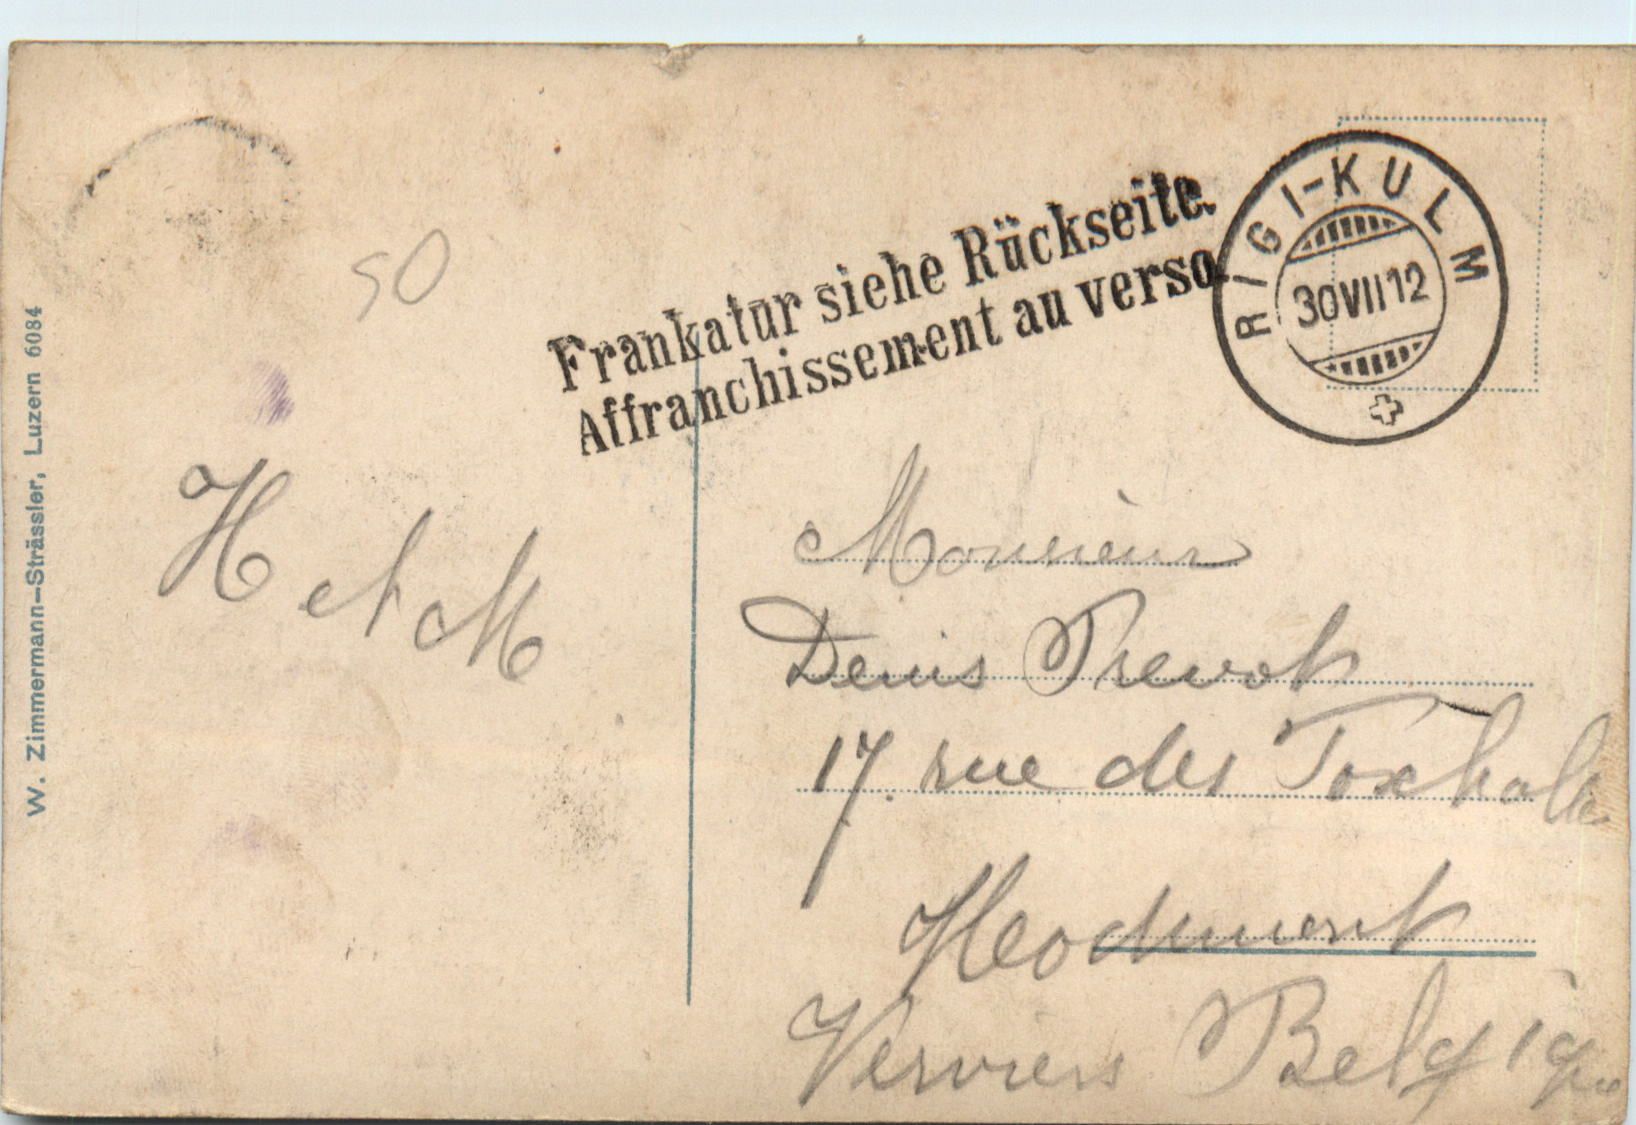 Frankatur siehe Rückseite.
Affranchissement au verso.
RIGI-KULM
30 VII 12
50
W. Zimmermann-Strässler, Luzern 6084
H et M
Monsieur
Denis Prevot
17. rue des
Hodimont
Verviers Belgique